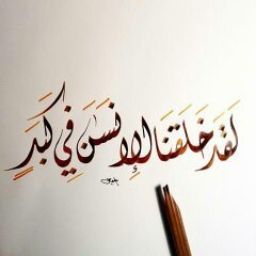 لَقَدْ خَلَقْنَا الْإِنسَـٰنَ فِي كَبَدٍ